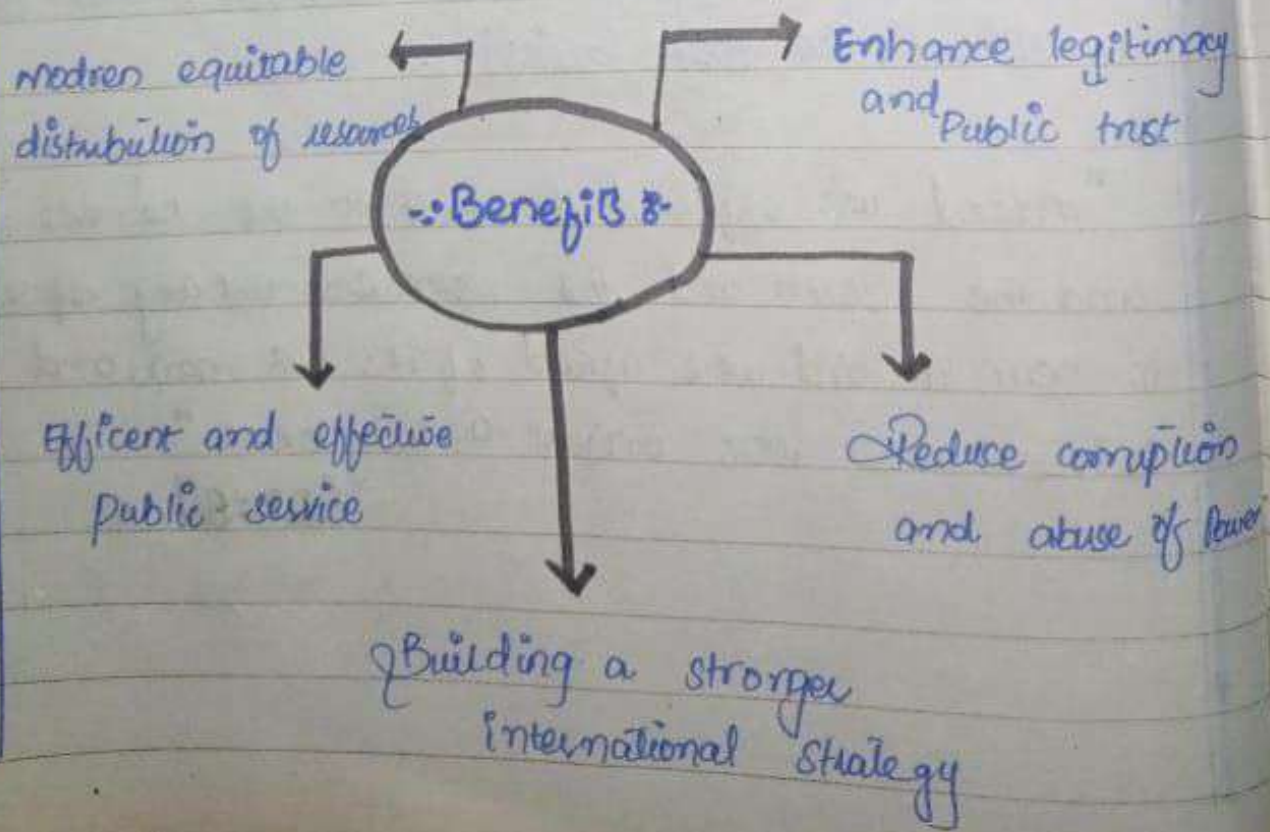 Modren equitable
distribution of resources
Enhance legitimacy
and Public trust
-:Benefits:-
Efficent and effective
Public service
Reduce corruption
and abuse of Power
Building a stronger
international strategy